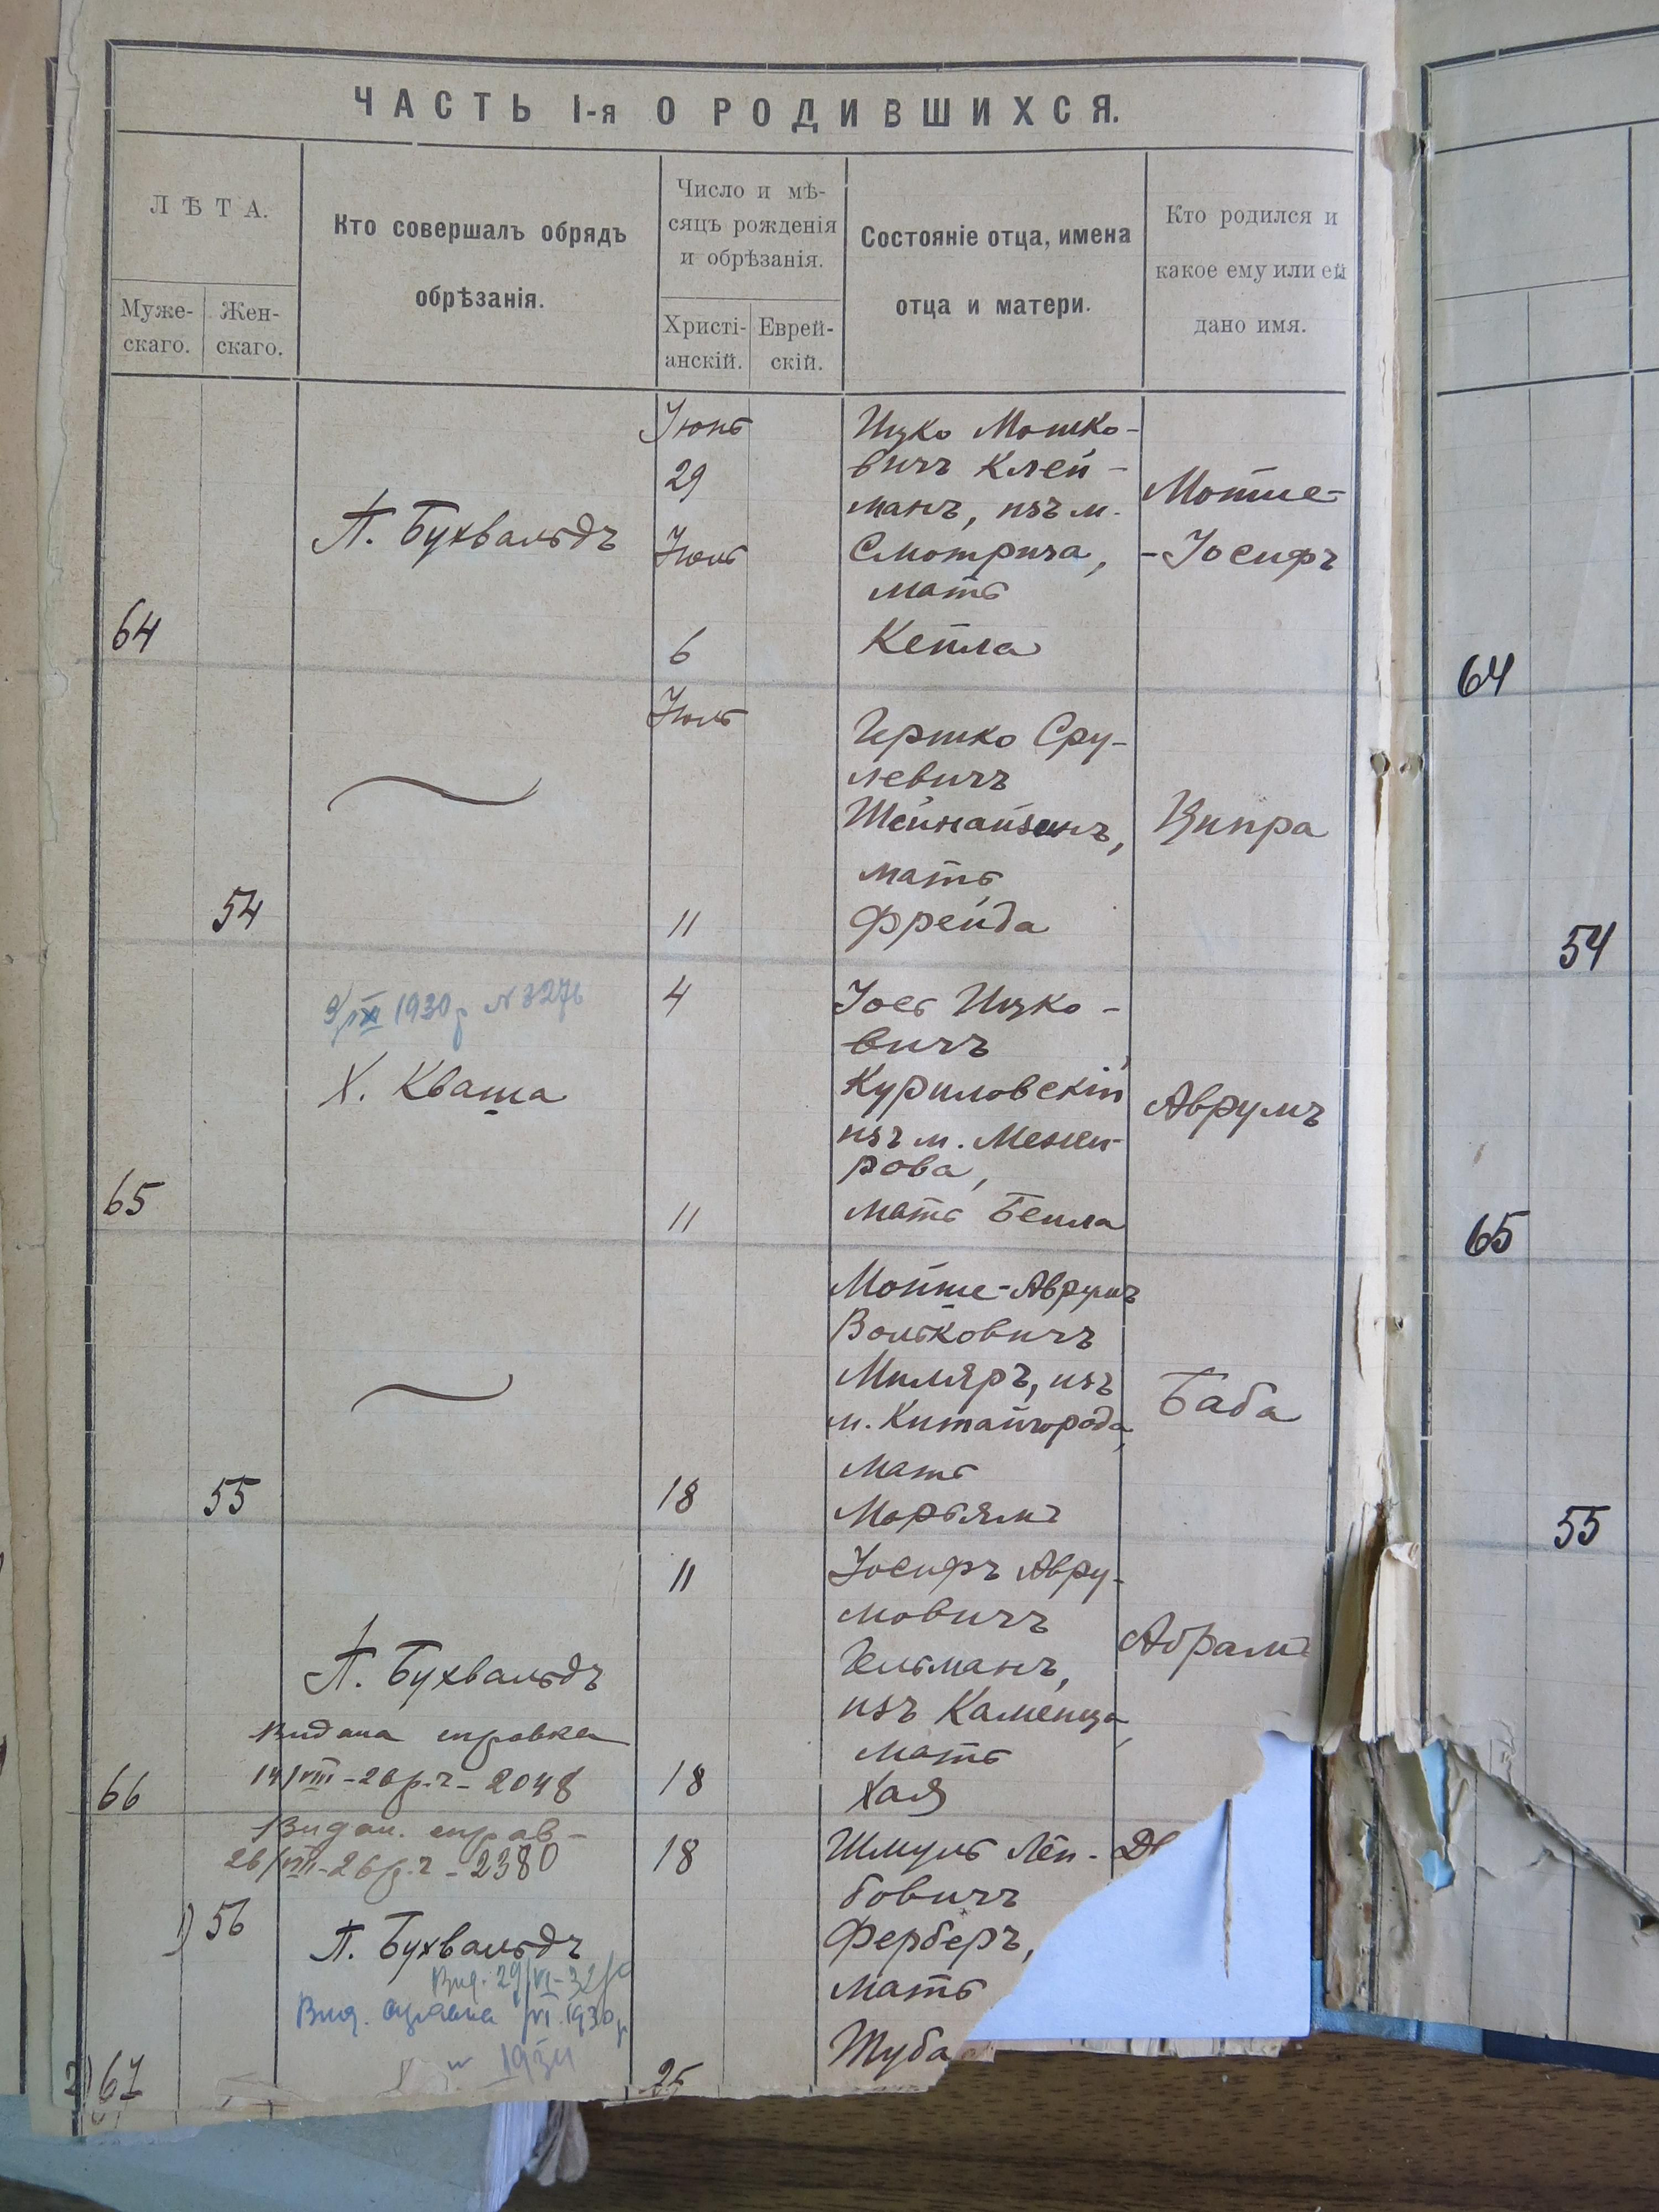 ЧАСТЬ I-я О РОДИВШИХСЯ.
ЛѢТА.
Муже-
скаго.
Жен-
скаго.
Кто совершалъ обрядъ
обрѣзанія.
Число и мѣ-
сяцъ рожденія
и обрѣзанія.
Христі-
анскій.
Еврей-
скій.
Состояніе отца, имена
отца и матери.
Кто родился и
какое ему или ей
дано имя.
64
П. Бухвальдъ
Іюнь
29
Іюль
6
Ицко Мошко-
вичъ Клей-
манъ, изъ м.
Смотрича,
мать
Кейла
Мотше-
-Іосифъ
64
54
Іюль
11
Гершко Сру-
левичъ
Шейнайзенъ,
мать
Фрейда
Ципра
54
65
1930 р № 3276
Х. Кваша
4
11
Іось Ицко-
вичъ
Куриловскій,
изъ м. Межи-
рова,
мать Бейла
Аврумъ
65
55
18
Мойше-Аврумъ
Вольковичъ
Миляръ, изъ
м. Китайгорода,
мать
Марьямъ
Баба
55
66
П. Бухвальдъ
Видана справка
14/VIII-26 р. ч-2048
11
18
Іосифъ Авру-
мовичъ
Гельманъ,
изъ Каменца,
мать
Хая
Абрамъ
Видан. справ-
26/VIII-26 р. ч-2380
1) 56
2) 67
П. Бухвальдъ
Вид. 29/VI-32 р
Вид. справка /VI.1930 р
1934
18
25
Шмуль Лей-
бовичъ
Ферберъ,
мать
Туба
Дв